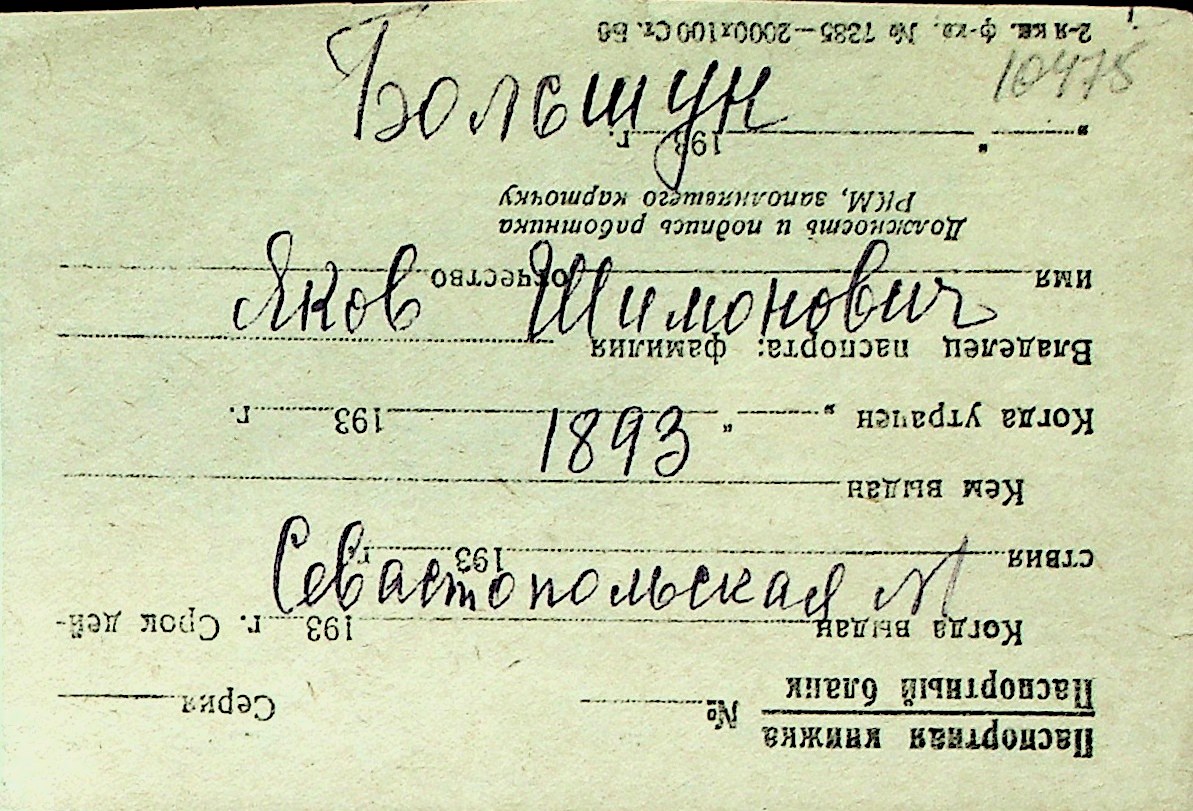 10475
Большун
Яков Шимонович
1893
Севастопольская N
Паспортная книжка
Паспортный бланк № Серия
Когда выдан 193 г. Срок дей-
ствия 193 г.
Кем выдан
Когда утрачен „ “ 193 г.
Владелец паспорта: фамилия
имя отчество
Должность и подпись работника
РКМ, заполнявшего карточку
„ “ 193 г.
2-я кв. ф-ка, № 7385—2000x100 Ст.